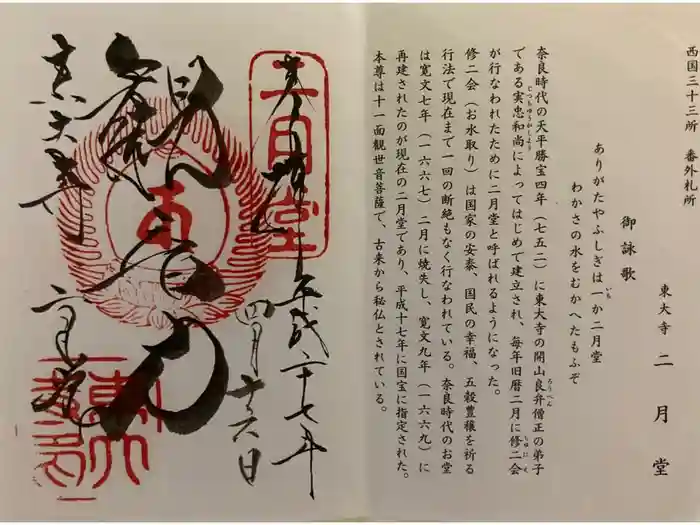 西国三十三所 番外札所
東大寺 二月堂
御詠歌
ありがたやふしぎは一か二月堂
いち
わかさの水をむかへたもふぞ
奈良時代の天平勝宝四年（七五二）に東大寺の開山良弁僧正の弟子
ろうべん
である実忠和尚によってはじめて建立され、毎年旧暦二月に修二会
じっちゅうかしょう
しゅにえ
が行なわれたために二月堂と呼ばれるようになった。
修二会（お水取り）は国家の安泰、国民の幸福、五穀豊穣を祈る
行法で現在まで一回の断絶もなく行なわれている。奈良時代のお堂
は寛文七年（一六六七）二月に焼失し、寛文九年（一六六九）に
再建されたのが現在の二月堂であり、平成十七年に国宝に指定された。
本尊は十一面観世音菩薩で、古来から秘仏とされている。
奉拝
平成二十七年
四月十六日
二月堂
観音力
東大寺
二月堂